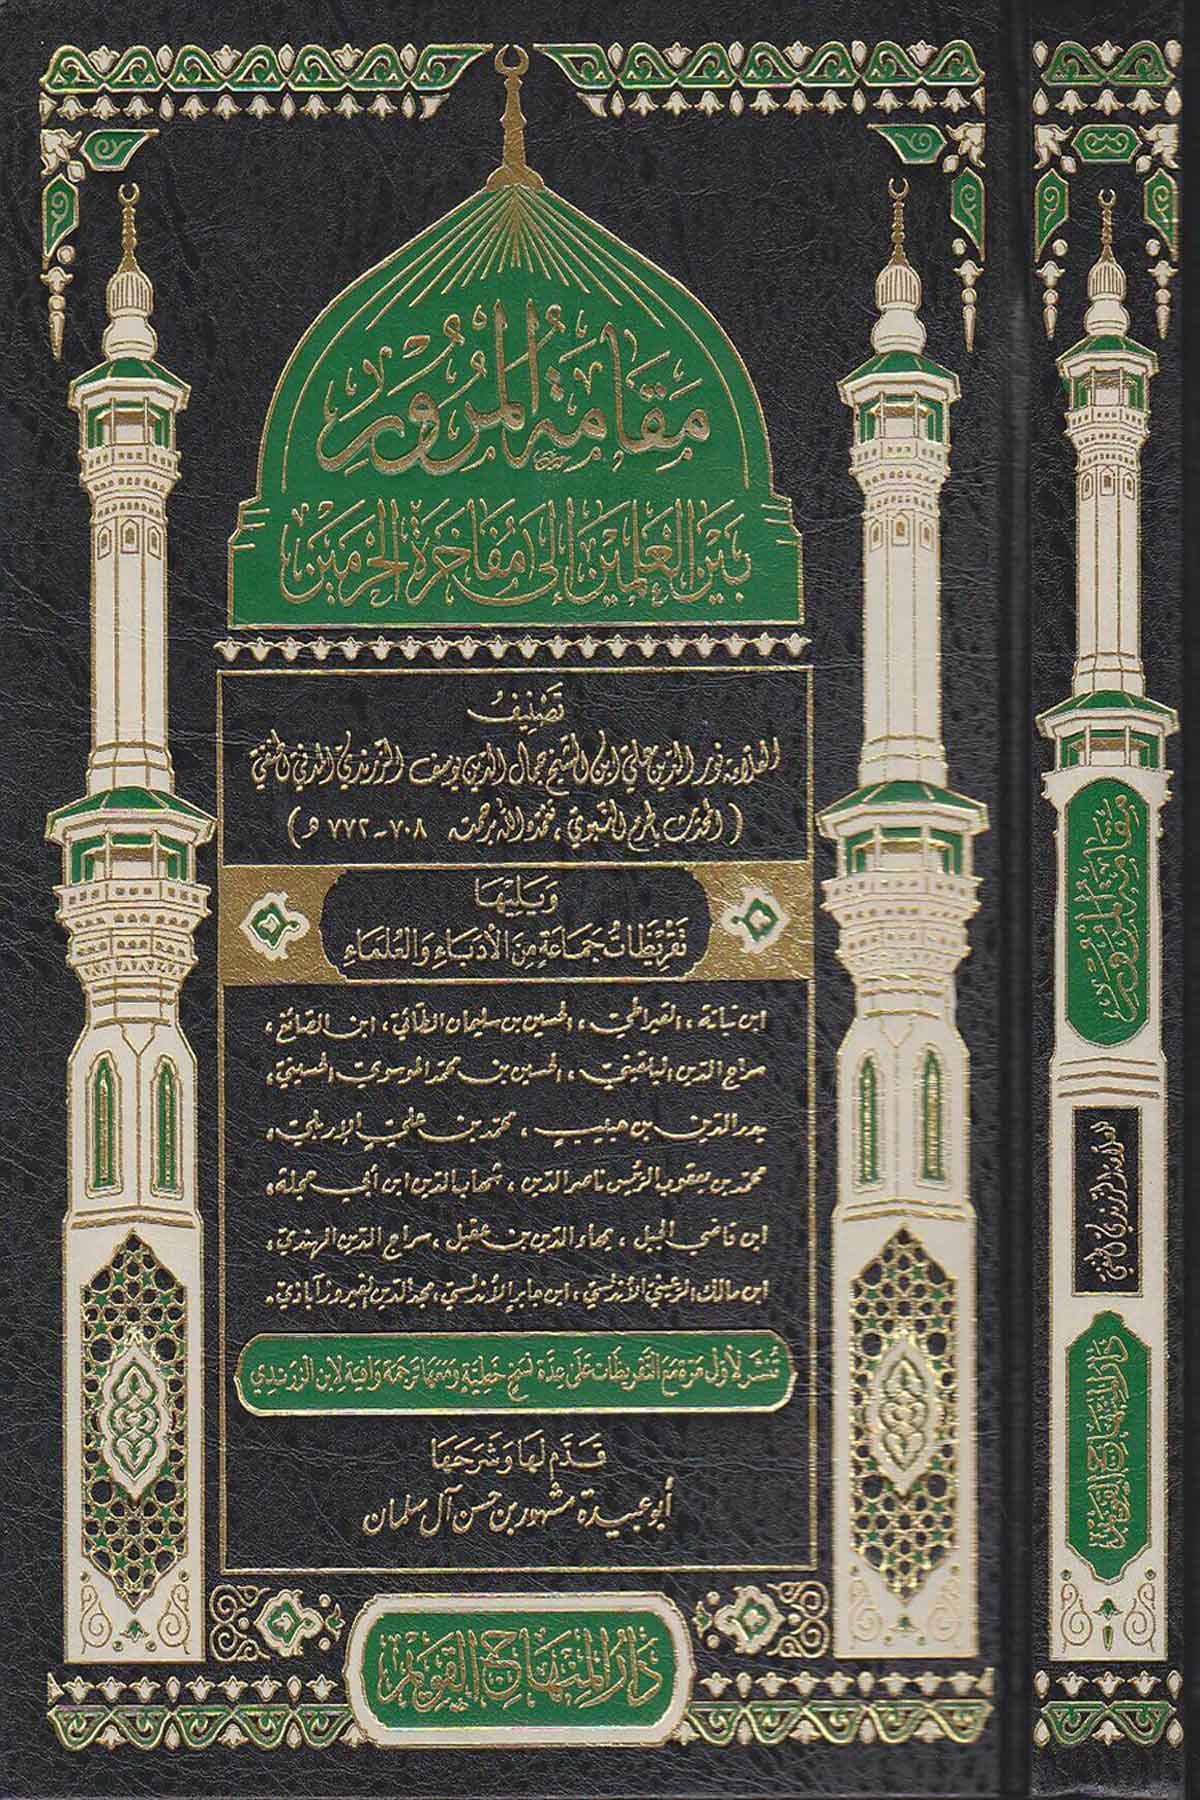 مَقَامَةُ المُرُورِ
بَيْنَ العَلَمَيْنِ إِلَى مُفَاخَرَةِ الحَرَمَيْنِ
تَصْنِيفُ
العلامة نور الدين علي ابن الشيخ جمال الدين يوسف الزرندي المدني الحنفي
(المحدث بالحرم النبوي، تغمده الله برحمته ٧٠٨-٧٧٢ هـ)
وَيَلِيْهَا
تَقْرِيْظَاتُ جَمَاعَةٍ مِنَ الأُدَبَاءِ وَالعُلَمَاءِ
ابن نباتة، القيراطي، الحسين بن سليمان الطائي، ابن الصائغ،
سراج الدين البلقيني، الحسين بن محمد الموسوي الحسيني،
بدر الدين بن حبيب، محمد بن علي الإربلي،
محمد بن يعقوب الرئيس ناصر الدين، شهاب الدين ابن أبي حجلة،
ابن قاضي الجبل، بهاء الدين بن عقيل، سراج الدين الهندي،
ابن مالك الرعيني الأندلسي، ابن جابر الأندلسي، مجد الدين الفيروزآبادي.
تُنْشَر لأَوَّل مَرَّة مَعَ التَّقْرِيظَات عَلَى عِدَّة نُسَخٍ خَطِّيَّةٍ وَمَعَهَا تَرْجَمَة وَافِيَة لِابْنِ الزَّرَنْدِي
قَدَّمَ لَهَا وَشَرَحَهَا
أبو عبيدة مشهور بن حسن آل سلمان
دَارُ المِنْهَاجِ القَوِيمِ
مقامة المرور
العلامة الزرندي الحنفي
دار المنهاج القويم